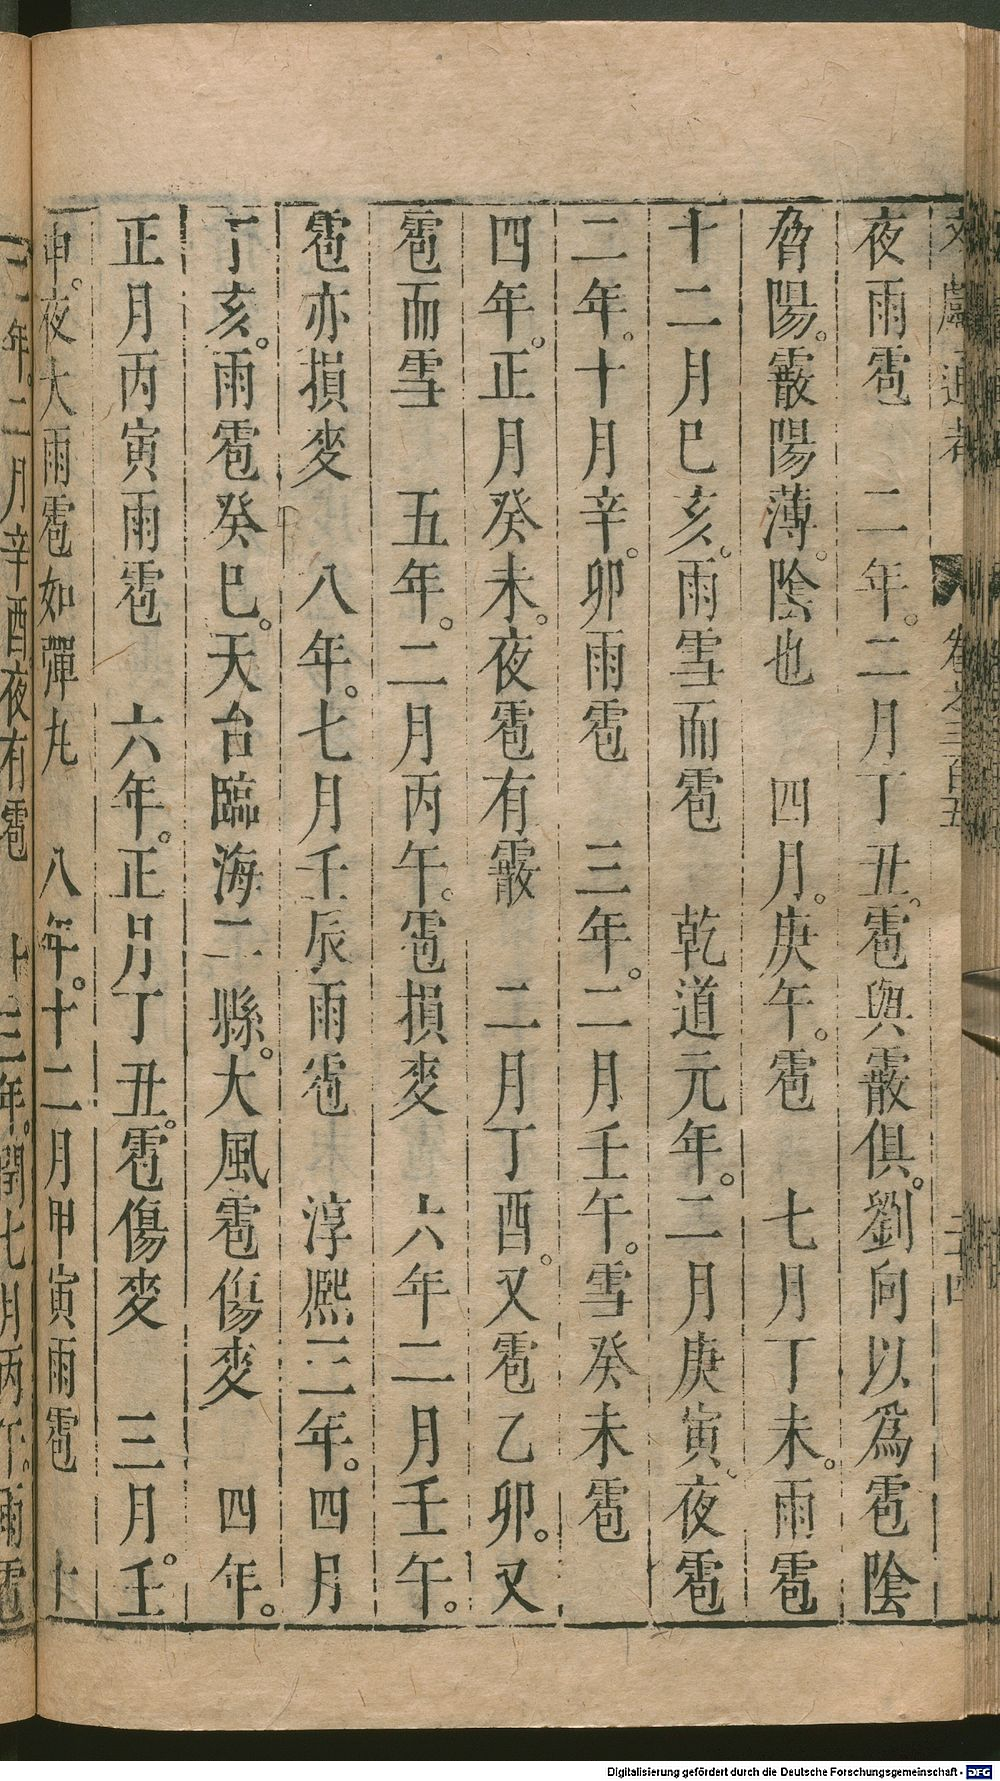 文獻通考　卷之三百五　二十四
夜雨雹　二年。二月丁丑。雹與霰俱。劉向以爲雹陰
脅陽。霰陽薄。陰也　四月。庚午。雹　七月丁未。雨雹
十二月巳亥。雨雪而雹　乾道元年。二月庚寅。夜雹
二年。十月辛。卯雨雹　三年。二月壬午。雪癸未雹
四年。正月癸未。夜雹有霰　二月丁酉。又雹乙卯。又
雹而雪　五年。二月丙午。雹損麥　六年二月壬午。
雹亦損麥　八年。七月壬辰雨雹　淳熈三年。四月
丁亥。雨雹癸巳。天台臨海二縣。大風雹傷麥　四年。
正月丙寅雨雹　六年。正月丁丑。雹傷麥　三月。壬
申。夜大雨雹如彈丸　八年。十二月甲寅雨雹　十
二年。二月辛酉夜有雹　十三年。閏七月丙午。雨雹
Digitalisierung gefördert durch die Deutsche Forschungsgemeinschaft - DFG